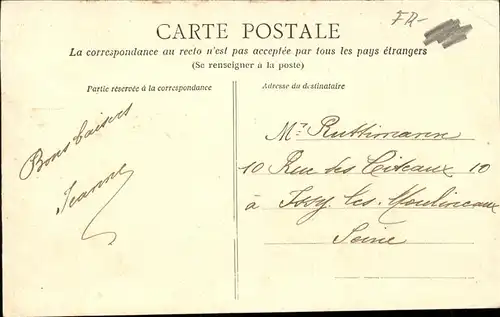 FR-
CARTE POSTALE
La correspondance au recto n'est pas acceptée par tous les pays étrangers
(Se renseigner à la poste)
Partie réservée à la correspondance
Adresse du destinataire
Bons baisers
Jeanne
Mr Ruttimann
10 Rue des Citeaux 10
à Issy les Moulineaux
Seine